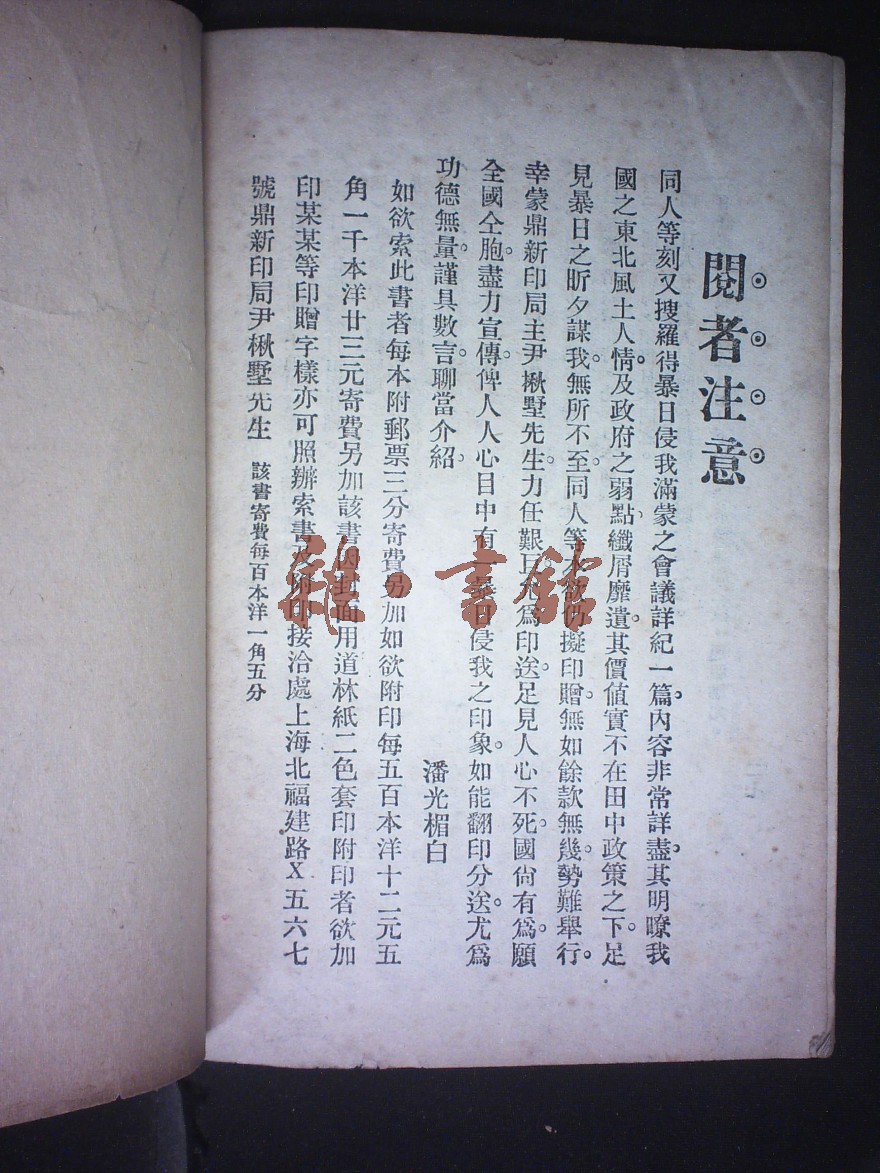 閱者注意
同人等刻又搜羅得暴日侵我滿蒙之會議詳紀一篇。內容非常詳盡。其明暸我
國之東北風土人情。及政府之弱點。纖屑靡遺。其價値實不在田中政策之下。足
見暴日之昕夕謀我。無所不至。同人等本欲仍擬印贈。無如餘款無幾。勢難舉行。
幸蒙鼎新印局主尹楸墅先生。力任艱巨。允爲印送。足見人心不死。國尙有爲。願
全國仝胞。盡力宣傳。俾人人心目中有一暴日侵我之印象。如能翻印分送。尤爲
功德無量。謹具數言。聊當介紹。
潘光楣白
如欲索此書者每本附郵票三分寄費另加如欲附印每五百本洋十二元五
角一千本洋廿三元寄費另加該書內封面用道林紙二色套印附印者欲加
印某某等印贈字樣亦可照辦索書及附印接洽處上海北福建路X五六七
號鼎新印局尹楸墅先生 該書寄費每百本洋一角五分
雜·書館